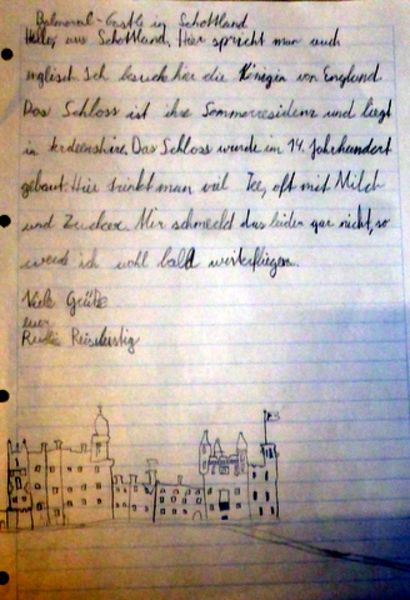 Balmoral-Castle in Schottland
Hallo aus Schottland, Hier spricht man auch
englisch. Ich besuche hier die Königin von England.
Das Schloss ist ihre Sommerresidenz und liegt
in Aerdeenshire. Das Schloss wurde im 14. Jahrhundert
gebaut. Hier trinkt man viel Tee, oft mit Milch
und Zucker. Mir schmeckt das leider gar nicht, so
werde ich wohl bald weiterfliegen.
Viele Grüße
euer
Reiselustig